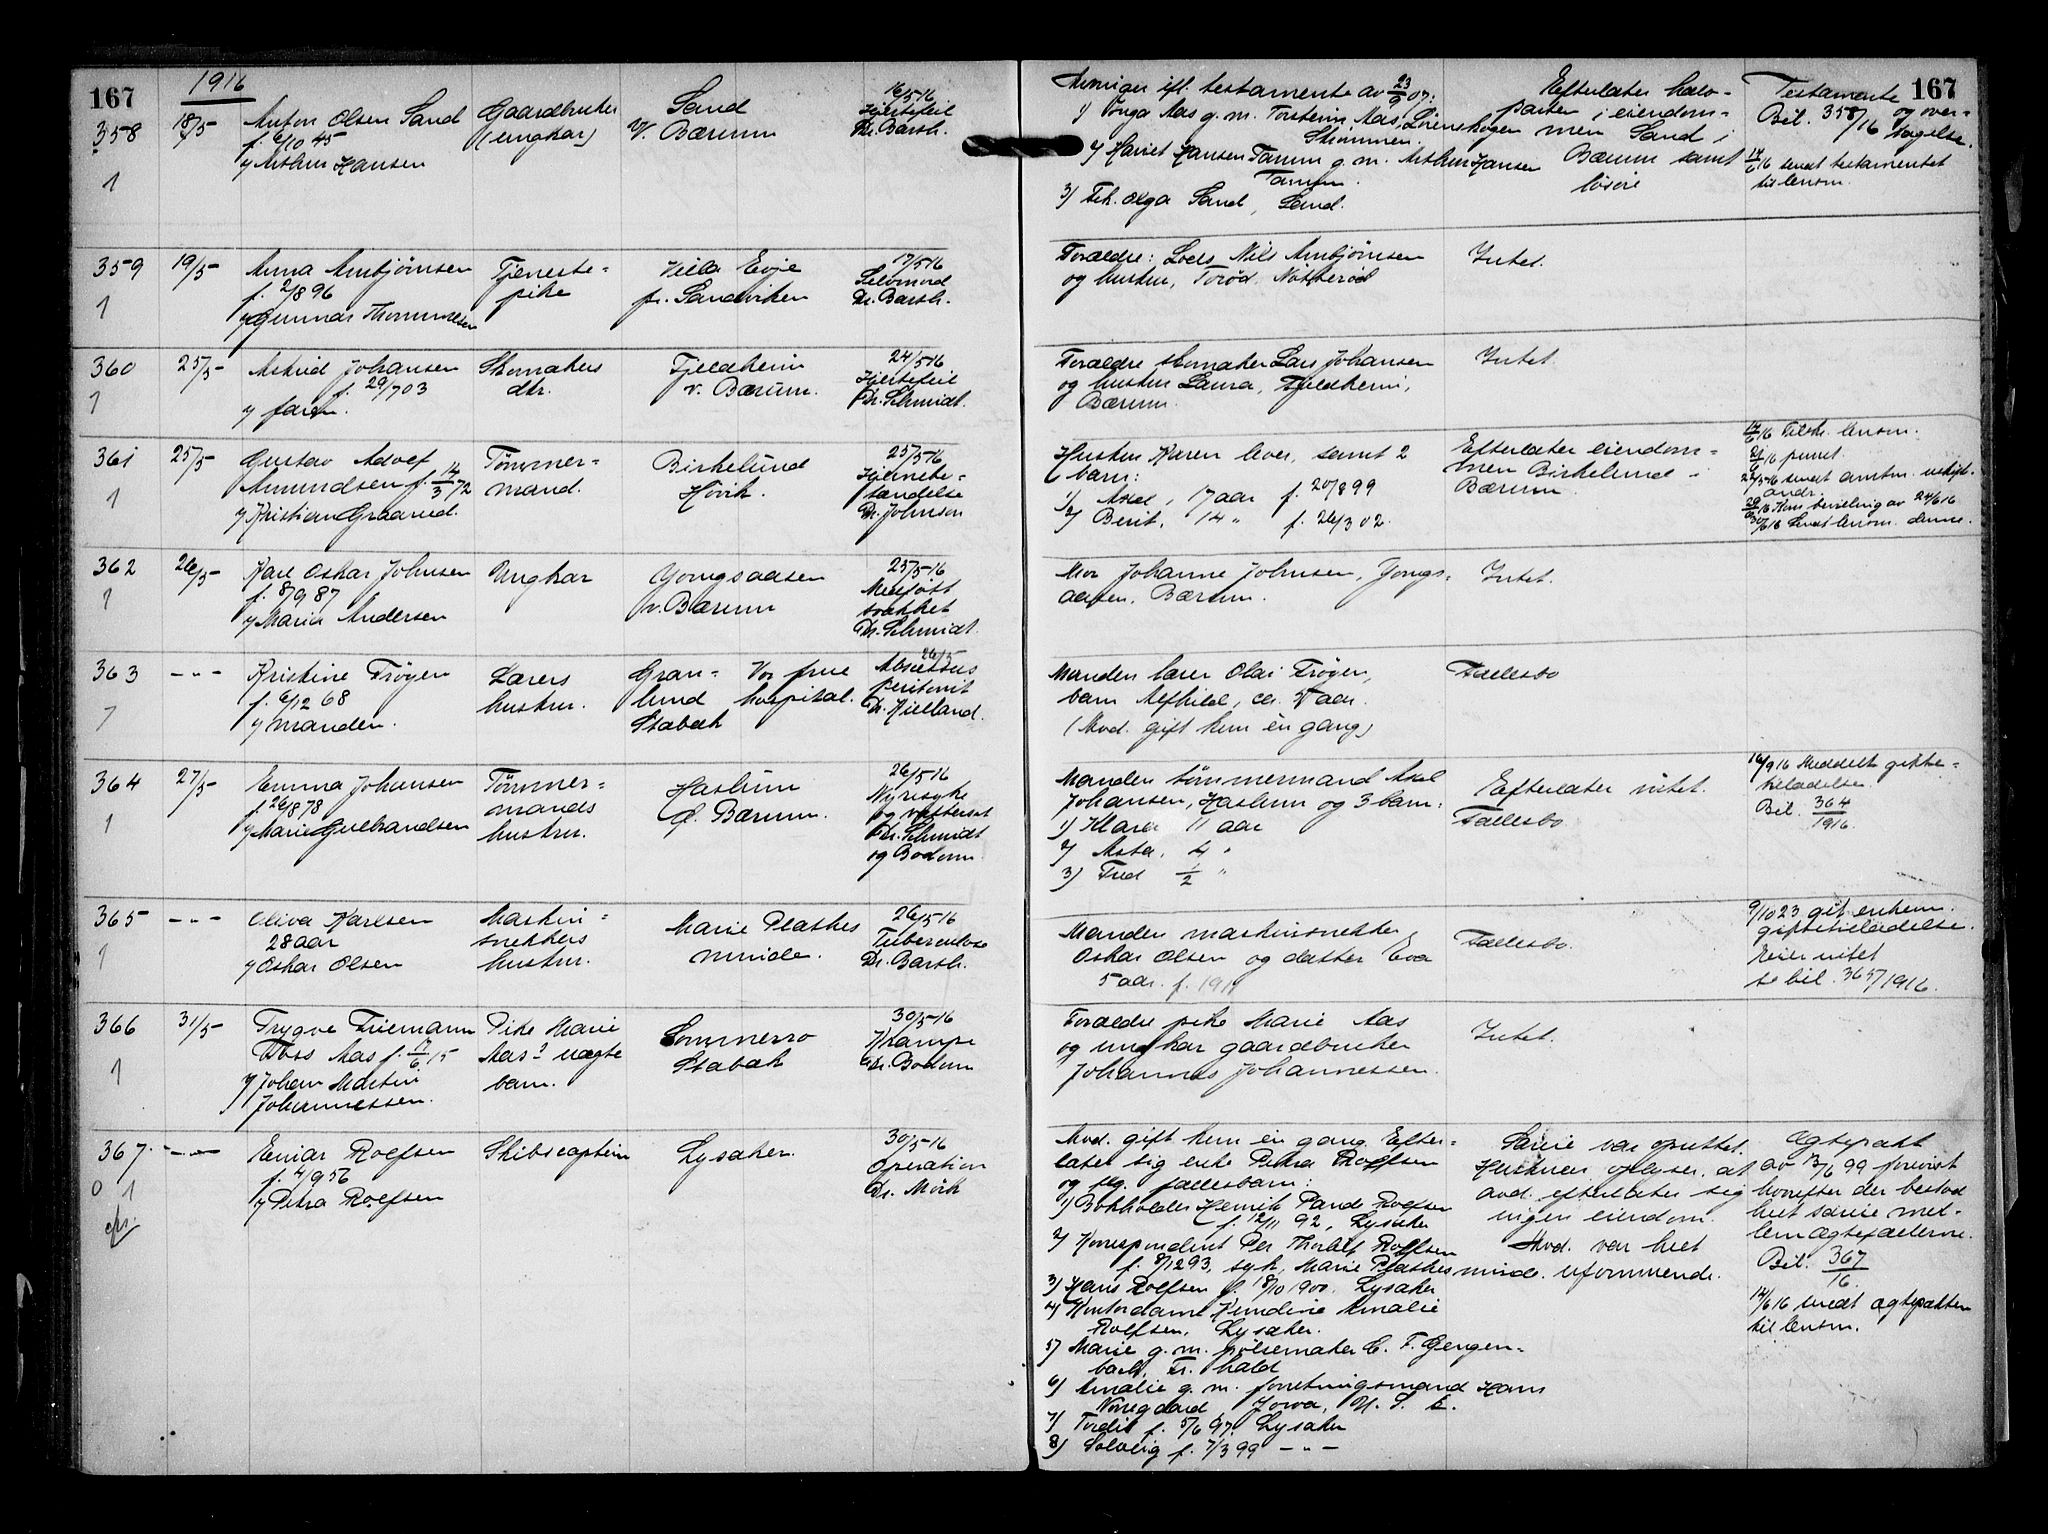 167
1916
358
18/5
Anton Olsen Sand
f. 6/10 45
v/ Arthur Hansen
1
Gaardbruker
(ungkar)
Sand
V. Bærum
16/5 16
Hjertefeil
Dr. Barth.
Arvinger ifl. testamente av 23/3 07:
1) Tonga Aas g. m. Torstein Aas, Løvenskogen
Strømmen.
2) Harriet Hansen Tanum g. m. Arthur Hansen
Tanum.
3) Frk. Olga Sand, Sand.
Efterlater halv-
parten i eiendom-
men Sand i
Bærum samt
løsøre
Testamente
167
Bil. 358/16 og over-
tagelse.
17/6 16 sendt testamentet
til lensm.
359
19/5
Anna Arnbjørnsen
f. 2/8 96
v/ Gunnar Thommesen
1
Tjeneste-
pike
Villa Evje
pr. Sandviken
17/5 16
Selvmord
Dr. Barth.
Forældre: Lods Nils Arnbjørnsen
og hustru, Torød, Nøtterød
Intet.
360
25/5
Astrid Johansen
f. 29/7 03
v/ faren.
1
Skomakers
dtr.
Fjeldheim
v. Bærum.
24/5 16
Hjertefeil
Dr. Schmidt.
Forældre skomaker Lars Johansen
og hustru Laura, Fjeldheim,
Bærum.
Intet.
361
25/5
Gustav Adolf
Amundsen f. 14/3 72
v/ Kristian Graarud.
1
Tømmer-
mand.
Birkelund
Høvik.
25/5 16
Hjernebe-
tændelse
Dr. Johnson
Hustru Karen lever, samt 2
barn:
1) Aksel, 17 aar f. 20/8 99
2) Berit, 14 " f. 26/3 02.
Efterlater eiendom-
men Birkelund i
Bærum.
17/6 16 Tilskr. lensm.
21/6 16 purret.
22/6 16 sendt amtm. uskift.
andr.
29/6 16 Kom bevilling av 24/6 16
30/6 16 Sendt lensm. denne.
362
26/5
Karl Oskar Johnsen
f. 8/9 87
v/ Maria Andersen
1
Ungkar
Yongsaasen
v. Bærum
25/5 16
Medfødt
svakhet
Dr. Schmidt.
Mor Johanne Johnsen, Jongs-
aasen, Bærum.
Intet.
363
- " -
Kristine Frøyen
f. 6/12 68
v/ manden.
7
Lærers
hustru.
Gran-
lund
Stabæk
Vor frue
hospital.
26/5
Abscessus
peritonit
Dr. Kielland.
Manden lærer Olai Frøyen,
barn Alfhild, ca. 7 aar.
(Avd. gift kun èn gang)
Fællesbo
364
27/5
Emma Johansen
f. 26/8 78
v/ Marie Gulbrandsen
1
Tømmer-
mands
hustru.
Haslum
Ø. Bærum.
26/5 16
Nyresyke
og vattersot
Dr. Schmidt
og Bodom.
Manden tømmermand Axel
Johansen, Haslum og 3 barn:
1) Klara 11 aar
2) Asta, 4 "
3) Fred 1/2 "
Efterlater intet.
Fællesbo
16/9 16 Meddelt gifte-
tilladelse
Bil. 364/1916.
365
- " -
Oliva Karlsen
28 aar
v/ Oskar Olsen
1
Maskin-
snekkers
hustru.
Marie Plathes
minde.
26/5 16
Tuberculose
Dr. Barth.
Manden maskinsnekker
Oskar Olsen og datter Eva
5 aar. f. 1911
Fællesbo.
9/10 23 git enkem.
giftetilladelse.
Eier intet
se bil. 365/1916.
366
31/5
Trygve Friemann
Foss Aas f. 17/6 15
v/ Johan Martin
Johannessen.
1
Pike Marie
Aas' uægte
barn.
Sommerro
Stabæk
30/5 16
Krampe
Dr. Bodom
Forældre pike Marie Aas
og ungkar gaardbruker
Johannes Johannessen.
Intet.
367.
- " -
Einar Rolfsen
f. 4/9 56
v/ Petra Rolfsen
0 1
Skibscaptein
Lysaker.
30/5 16
Operation
Dr. Mørk
Avd. gift kun èn gang. Efter-
latet sig enke Petra Rolfsen
og flg. fællesbarn:
1) Bokholder Henrik Pande Rolfsen
f. 12/11 92, Lysaker
2) Korrespondent Per Thorleif Rolfsen
f. 8/12 93, syk, Marie Plathes minde.
3) Hans Rolfsen f. 18/10 1900. Lysaker
4) Kontordame Kundine Amalie
Rolfsen, Lysaker.
5) Marie g. m. pølsemaker C. F. Gengen-
bach, Fr. hald
6) Amalie g. m. forretningsmand Hans
Norregaard, Jowa, U. S. E.
7) Tordis f. 5/6 97. Lysaker
8) Solveig f. 7/3 99 - " -
Særeie var oprettet.
Hustruen oplyser, at
avd. efterlater sig
ingen eiendom.
Avd. var helt
uformuende.
Ægtepakt
av 13/6 99 forevist
hvorefter der bestod
helt særeie mel-
lem ægtefællerne.
Bil. 367/16.
14/6 16 sendt ægtepakten
til lensm.